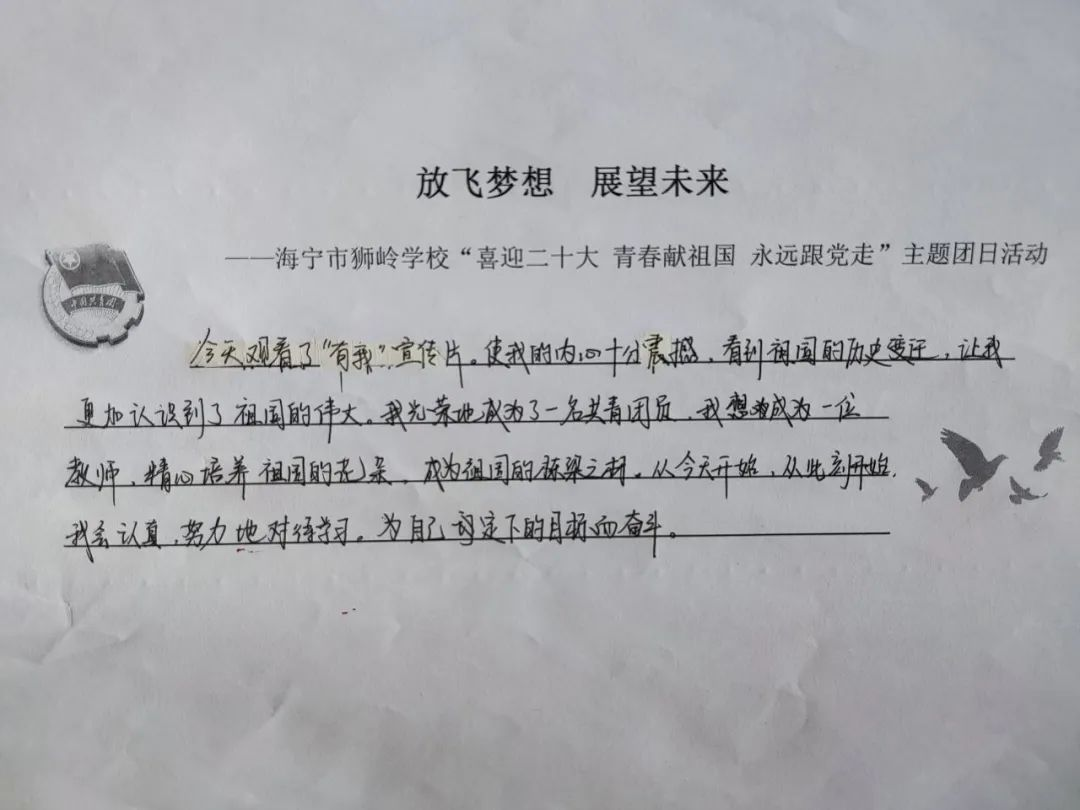 放飞梦想 展望未来
——海宁市狮岭学校“喜迎二十大 青春献祖国 永远跟党走”主题团日活动
中国共青团
今天观看了“有我”宣传片。使我的内心十分震撼，看到祖国的历史变迁，让我
更加认识到了祖国的伟大。我光荣地成为了一名共青团员，我想成为一位
教师，精心培养祖国的花朵，成为祖国的栋梁之材。从今天开始，从此刻开始，
我会认真，努力地对待学习。为自己定下的目标而奋斗。